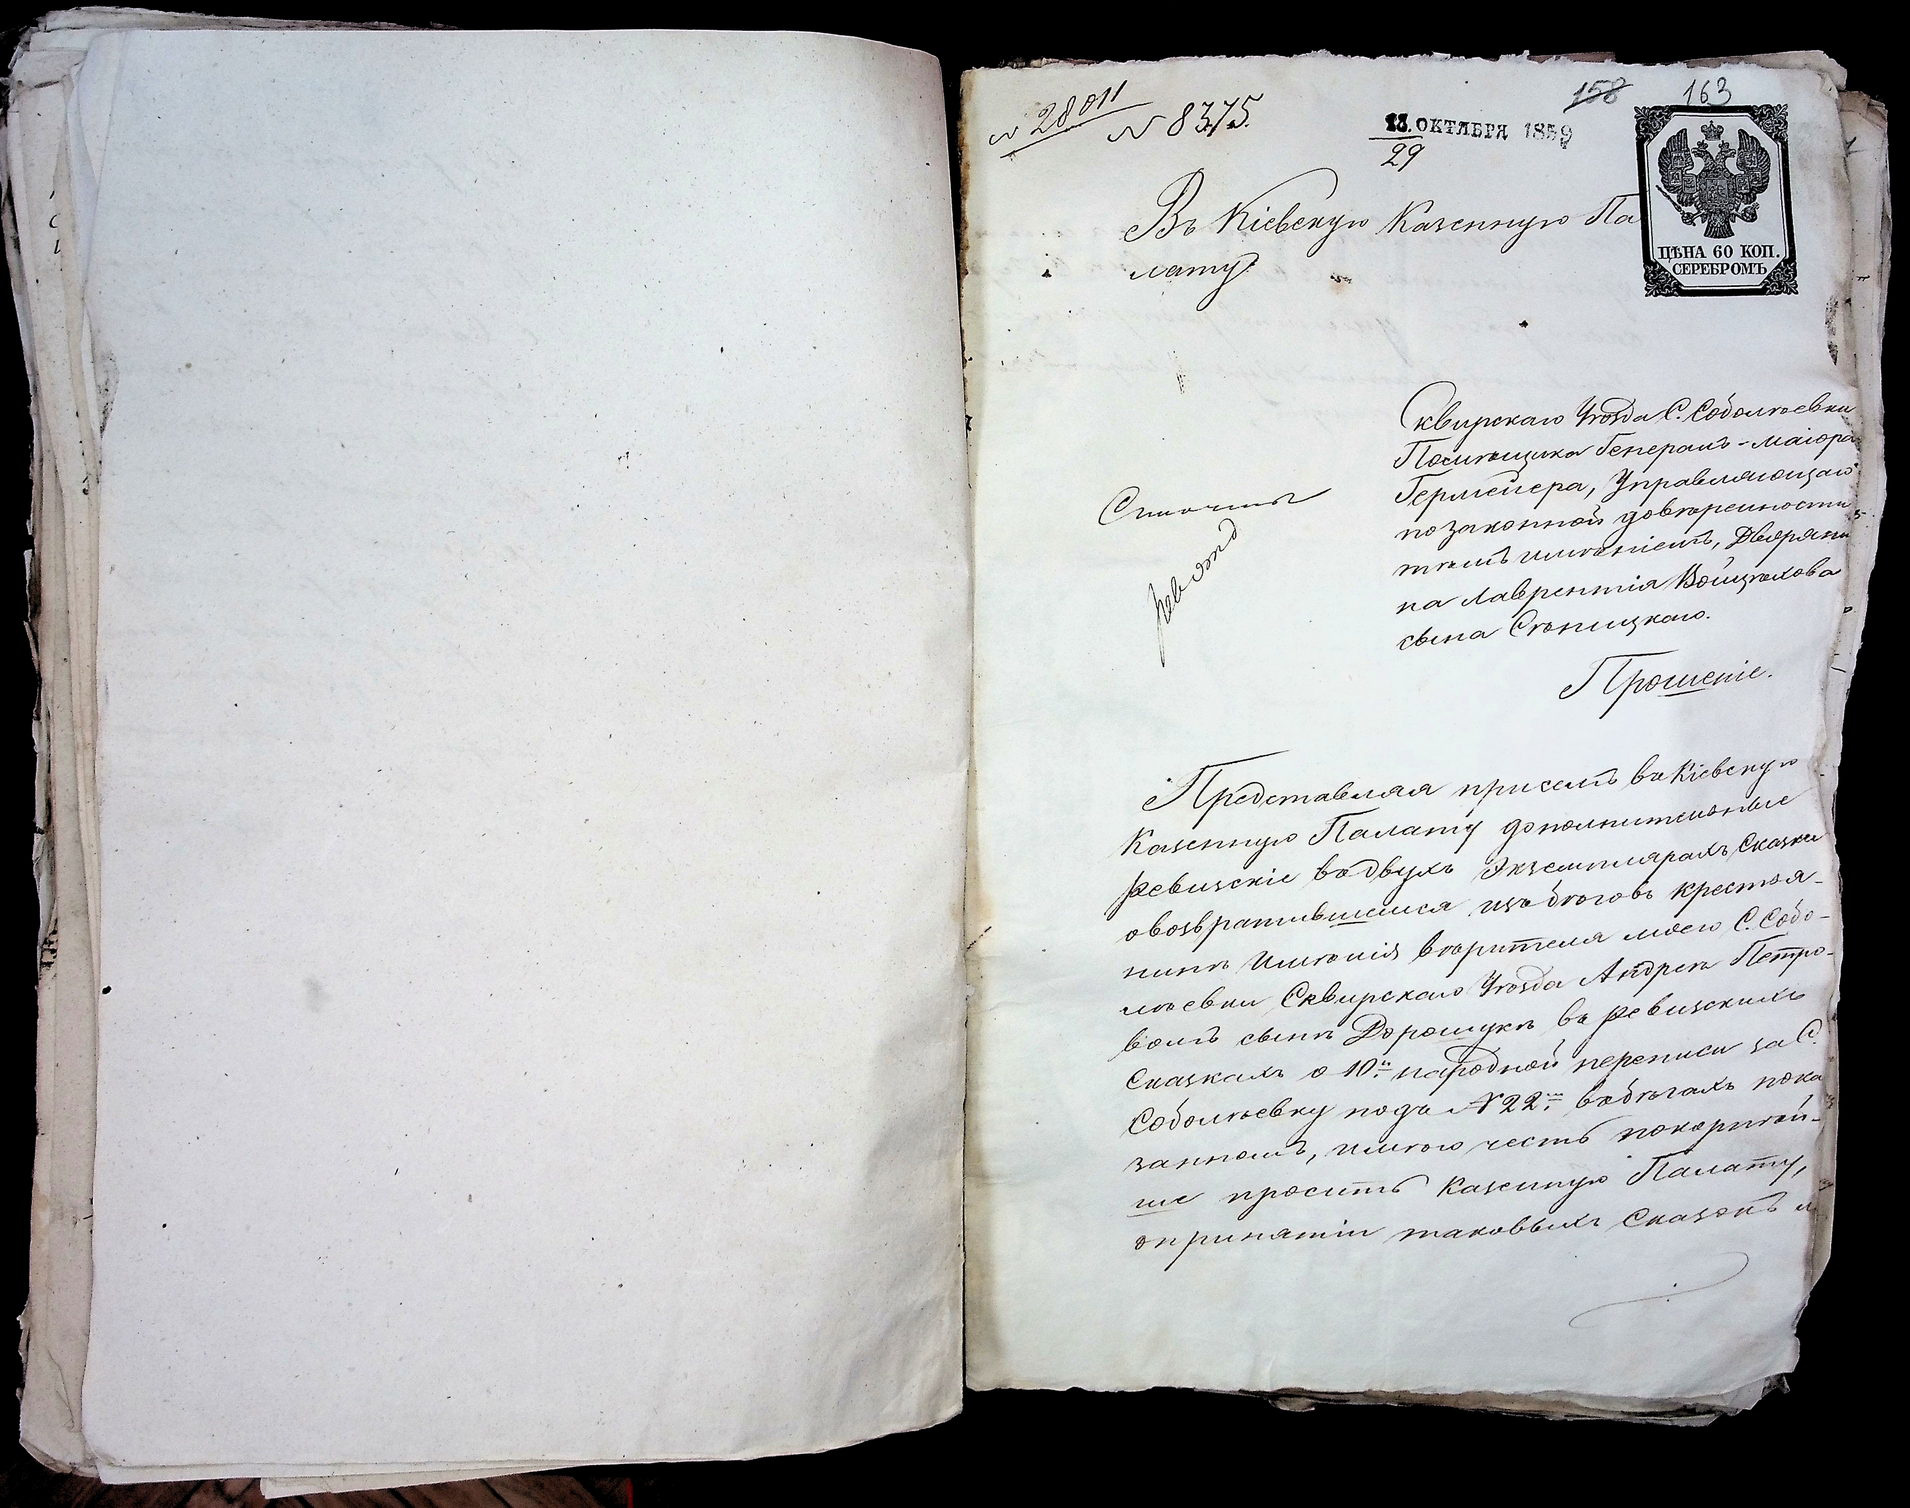 № 28011
№ 8375.
13. ОКТЯБРЯ 1859
29
158
163
ЦѢНА 60 КОП.
СЕРЕБРОМЪ
Въ Кіевскую Казенную Па
лату
Сквирскаго Уѣзда С. Соболѣевки
Помѣщика Генералъ-маіора
Гермейера, Управляющаго
по законной довѣренности
тѣмъ имѣніемъ, Дворяни
на Лаврентія Войцѣхова
сына Сѣницкаго.
Прошеніе.
Представляя присемъ въ Кіевскую
Казенную Палату дополнительные
ревизскіе въ двухъ Экземплярахъ Сказки
о возвратившемся изъ бѣговъ крестья-
нинѣ имѣнія вѣрителя моего С. Собо-
лѣевки Сквирскаго Уѣзда Андреѣ Петро-
вомъ сынѣ Дорошукѣ въ ревизскихъ
Сказкахъ о 10й народной переписи за С.
Соболѣевку подъ № 22м въ бѣгахъ пока
занномъ, имѣю честь покорнѣй-
ше просить Казенную Палату,
о принятіи таковыхъ Сказокъ и